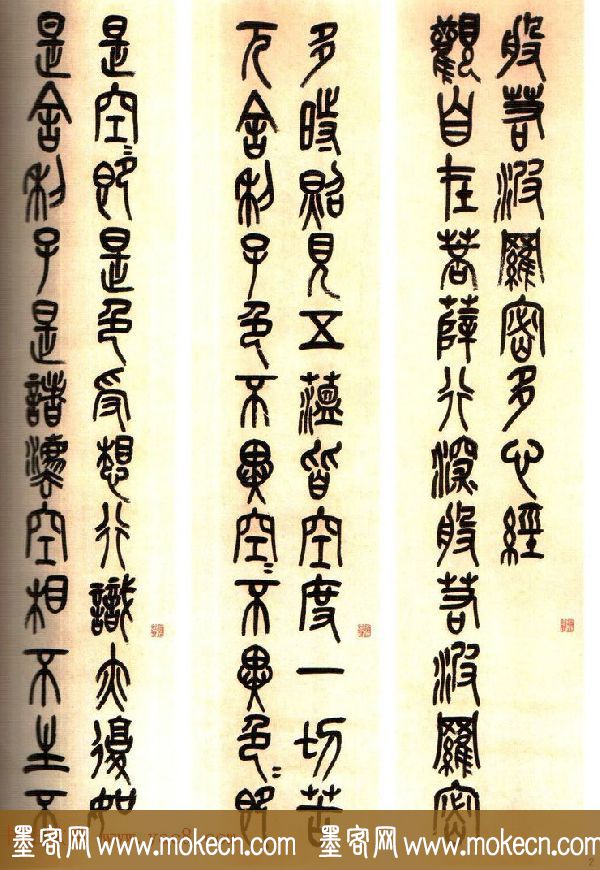 般若波羅密多心經
觀自在菩薩行深般若波羅密
多時照見五蘊皆空度一切苦
厄舍利子色不異空〻不異色〻即
是空〻即是色受想行識亦復如
是舍利子是諸灋空相不生不
墨客网 www.mokecn.com 墨客网 www.mokecn.com
2